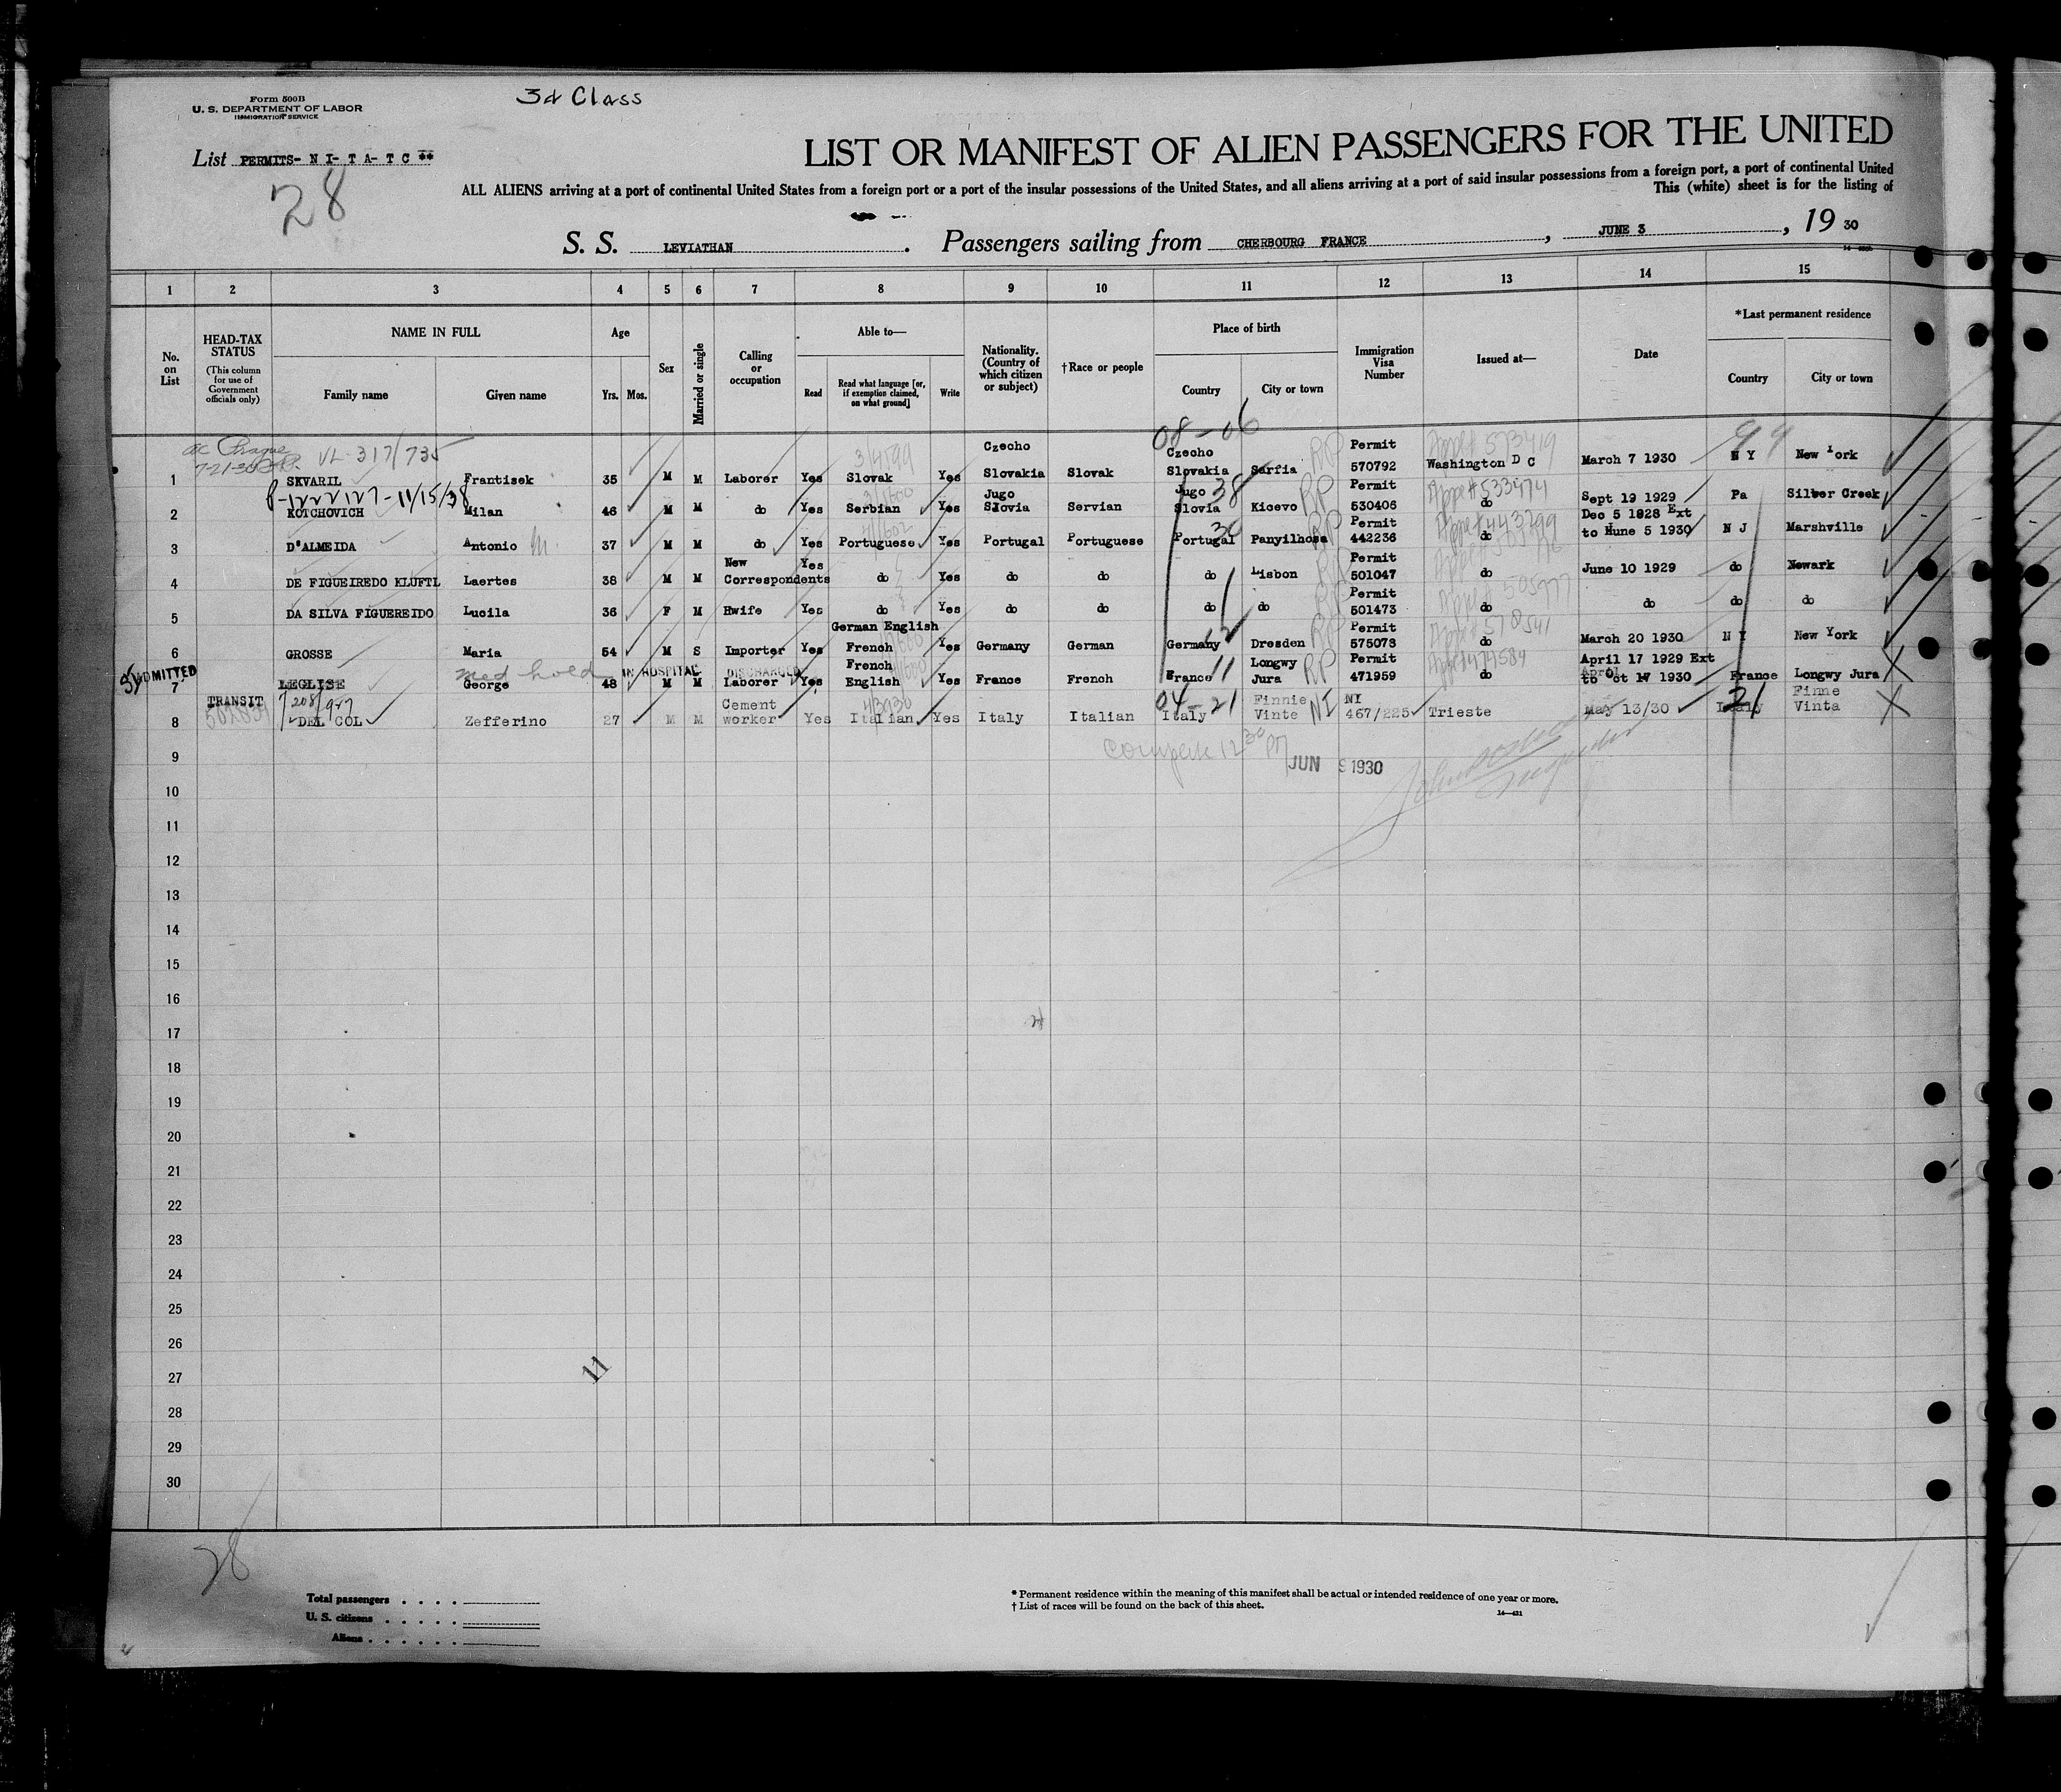 Form 500B
U. S. DEPARTMENT OF LABOR
IMMIGRATION SERVICE
3d Class
List PERMITS- N I- T A- T C **
28
LIST OR MANIFEST OF ALIEN PASSENGERS FOR THE UNITED
ALL ALIENS arriving at a port of continental United States from a foreign port or a port of the insular possessions of the United States, and all aliens arriving at a port of said insular possessions from a foreign port, a port of continental United
This (white) sheet is for the listing of
S. S. LEVIATHAN. Passengers sailing from CHERBOURG FRANCE, JUNE 3, 19 30
1 2 3 4 5 6 7 8 9 10 11 12 13 14 15
No. on List
HEAD-TAX STATUS (This column for use of Government officials only)
NAME IN FULL
Family name Given name
Age
Yrs. Mos.
Sex
Married or single
Calling or occupation
Able to—
Read
Read what language [or, if exemption claimed, on what ground]
Write
Nationality. (Country of which citizen or subject)
†Race or people
Place of birth
Country City or town
Immigration Visa Number
Issued at—
Date
*Last permanent residence
Country City or town
VL-317/735 08-06 99
1 SKVARIL Frantisek 35 M M Laborer Yes Slovak Yes Czecho Slovakia Slovak Czecho Slovakia Sarfia RP Permit 570792 Washington D C March 7 1930 N Y New York
1222127-11/15/38
2 KOTCHOVICH Milan 46 M M do Yes Serbian Yes Jugo Slovia Servian Jugo Slovia 38 Kicevo RP Permit 530406 do Sept 19 1929 Pa Silver Creek
3 D'ALMEIDA Antonio M. 37 M M do Yes Portuguese Yes Portugal Portuguese Portugal Panyilhosa RP Permit 442236 do Dec 5 1928 Ext to Hune 5 1930 N J Marshville
4 DE FIGUEIREDO KLUFTL Laertes 38 M M New Correspondents Yes do Yes do do do Lisbon Permit 501047 do June 10 1929 do Newark
5 DA SILVA FIGUEREIDO Lucila 36 F M Hwife Yes do Yes do do do do Permit 501473 do do do do
6 GROSSE Maria 54 M S Importer Yes German English French Yes Germany German Germany Dresden RP Permit 575073 do March 20 1930 N Y New York
ADMITTED med hold IN HOSPITAL DISCHARGED
7 LEGLISE George 48 M M Laborer Yes French English Yes France French France 11 Longwy Jura RP Permit 471959 do April 17 1929 Ext to Oct 17 1930 France Longwy Jura
TRANSIT
8 DEL COL Zefferino 27 M M Cement worker Yes Italian Yes Italy Italian Italy 04-21 Finnie Vinte NI NI 467/225 Trieste May 13/30 Italy 21 Finne Vinta
9 JUN 9 1930
10
11
12
13
14
15
16
17
18
19
20
21
22
23
24
25
26
27 11
28
29
30
28
Total passengers . . . .
U. S. citizens . . . . .
Aliens . . . . . .
* Permanent residence within the meaning of this manifest shall be actual or intended residence of one year or more.
† List of races will be found on the back of this sheet.
14—421